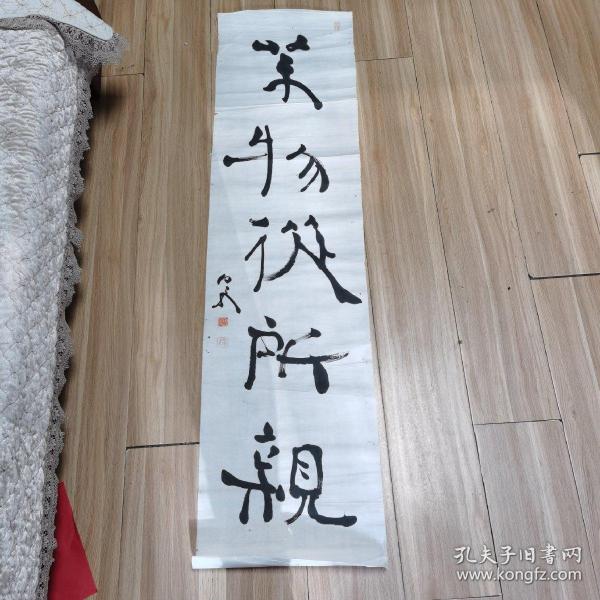 物從所親
孔夫子旧書网
www.kongfz.com